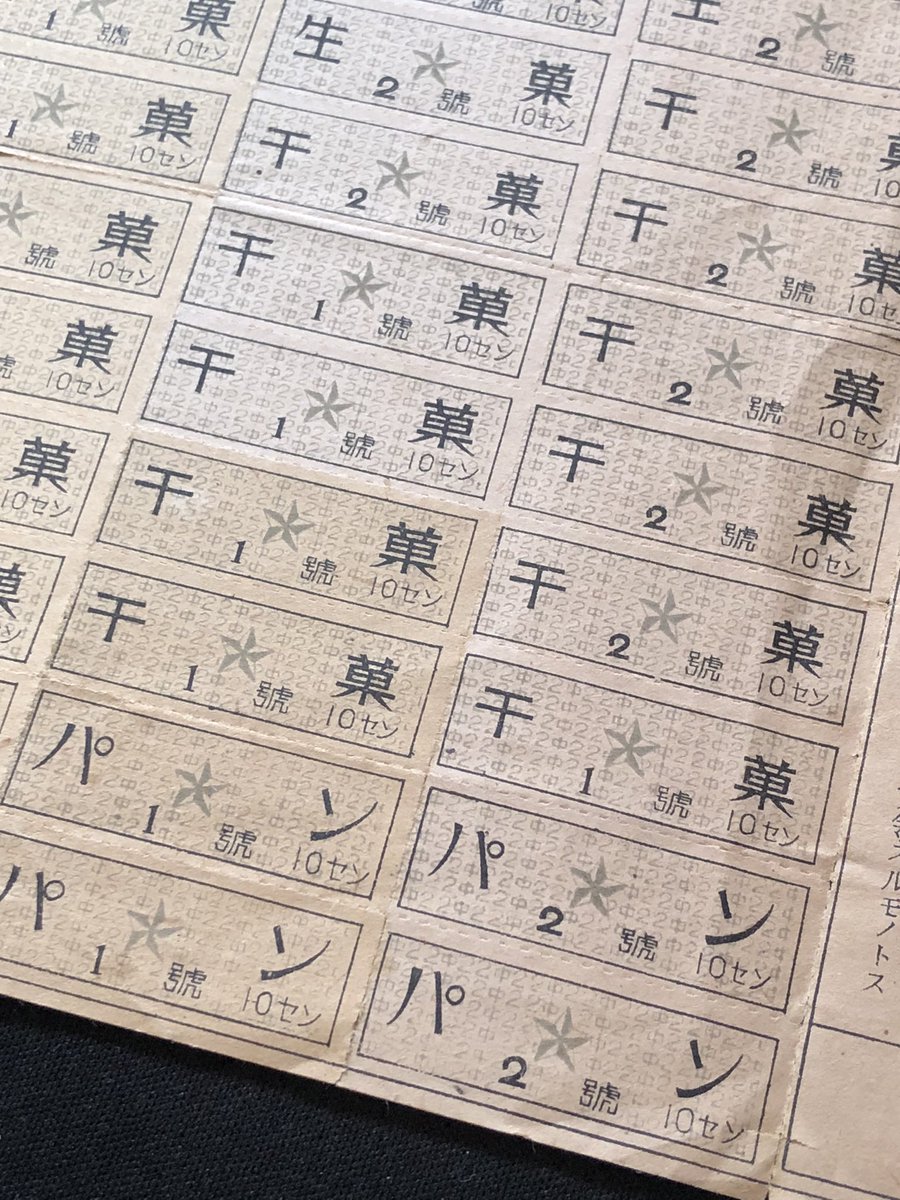 1 號 菓 10セン
1 號 菓 10セン
號 菓 10セン
號 菓 10セン
菓 10セン
菓
號 10セン
生 2 號 菓 10セン
干 2 號 菓 10セン
干 1 號 菓 10セン
干 1 號 菓 10セン
干 1 號 菓 10セン
干 1 號 菓 10セン
パ 1 號 ン 10セン
パ 1 號 ン 10セン
2 號
干 2 號 菓 10
干 2 號 菓 10セン
干 2 號 菓 10セン
干 2 號 菓 10セン
干 2 號 菓 10セン
干 1 號 菓 10セン
パ 2 號 ン 10セン
パ 2 號 ン 10セン
スルモノトス